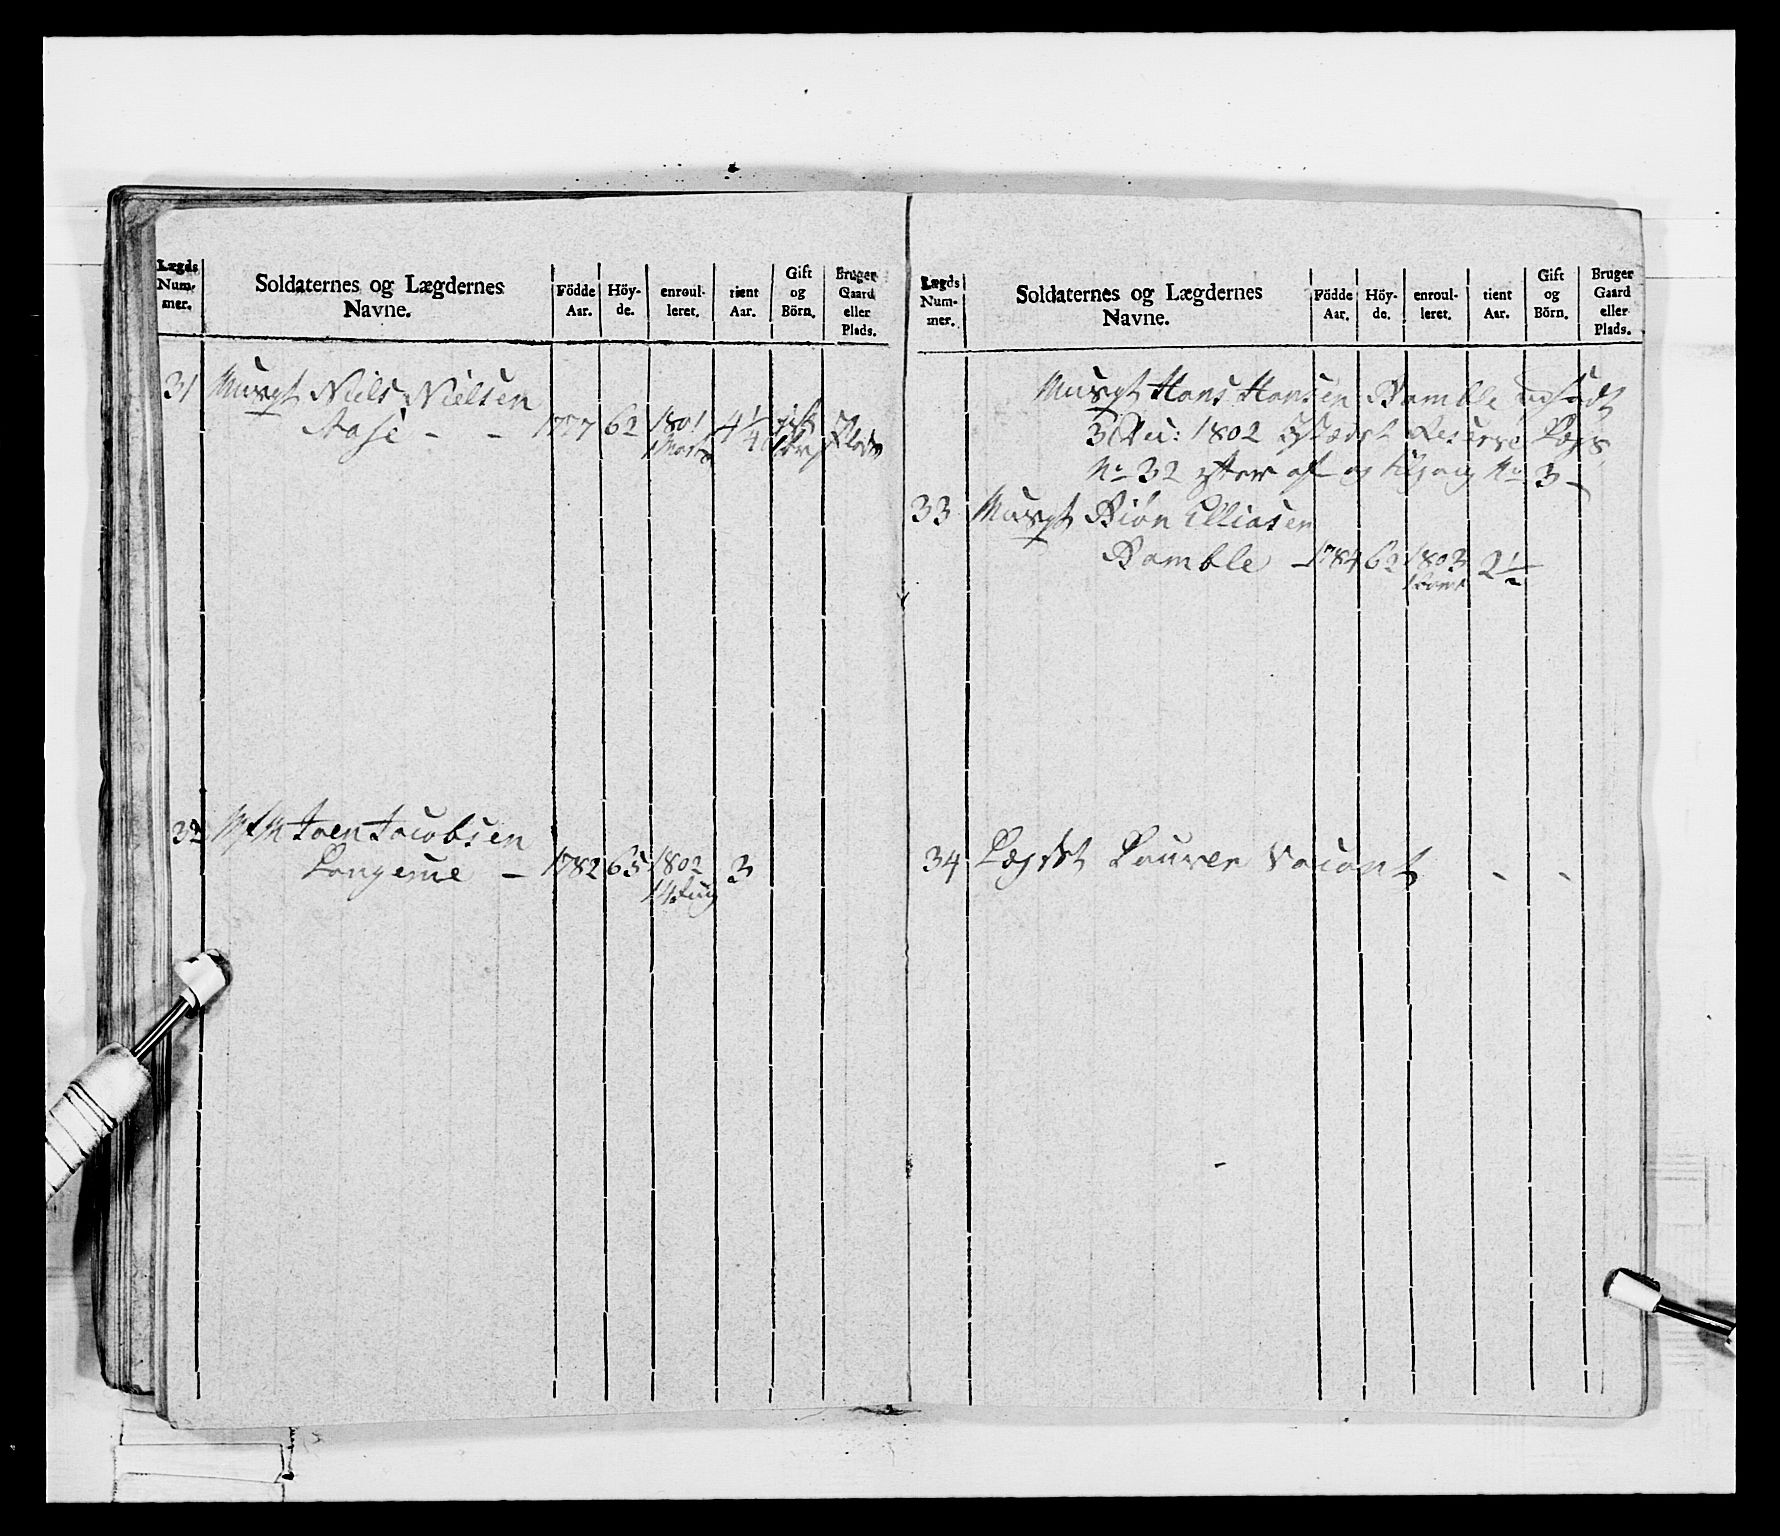 Lægds Num- mer.
Soldaternes og Lægdernes Navne.
Födde Aar.
Höy- de.
enroul- leret.
tient Aar.
Gift og Börn.
Bruger Gaard eller Plads.
31 Musqt Niels Nielsen
Aase - - 1777 62 1801 4 1/4 gift Plads
Jacobsen
Langerue - 1782 65 1802 3
14 Aug
Lægds Num- mer.
Soldaternes og Lægdernes Navne.
Födde Aar.
Höy- de.
enroul- leret.
tient Aar.
Gift og Börn.
Bruger Gaard eller Plads.
Musqt Hans Hansen Bamble
3 1802 Reserve Lægs
No 32 efter af og tilgang No 3 -
33 Musqt Biøn Elliasen
Bamble - 1784 62 1803 2 1/2
34 Lægdet Lauren Vacant - -